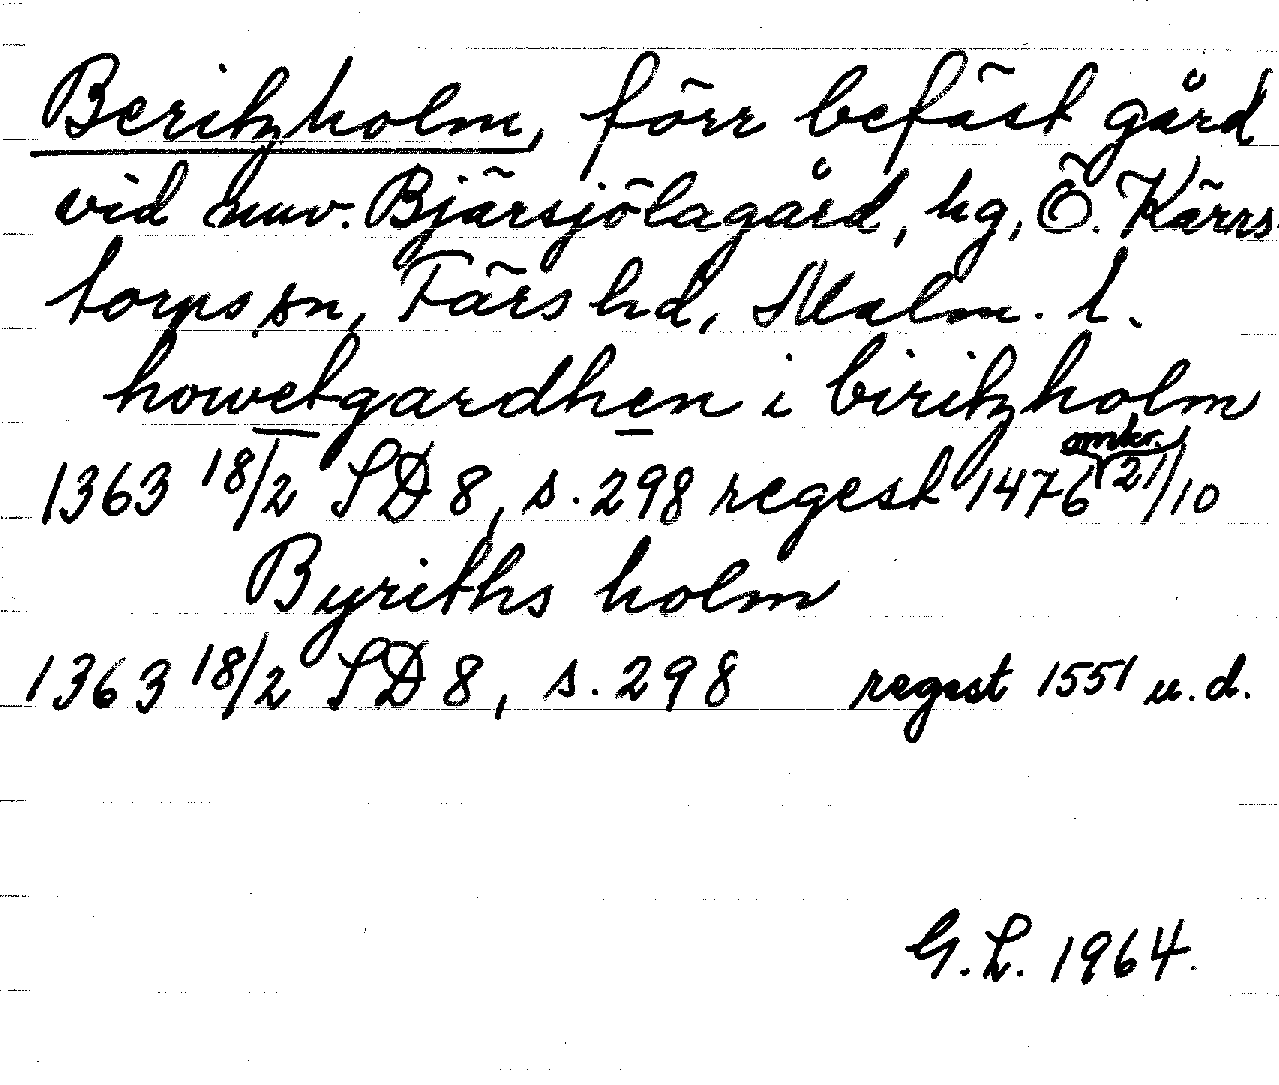 Beritzholm, förr befäst gård
vid nuv. Bjärsjölagård, hg, Ö. Kärrs-
torps sn, Färs hd, Malm. l.
howetgardhen i biritzholm
1363 18/2 SD 8, s. 298 regest 1476 omkr. 21/10
Byriths holm
1363 18/2 SD 8, s. 298 regest 1551 u. d.
G. L. 1964.